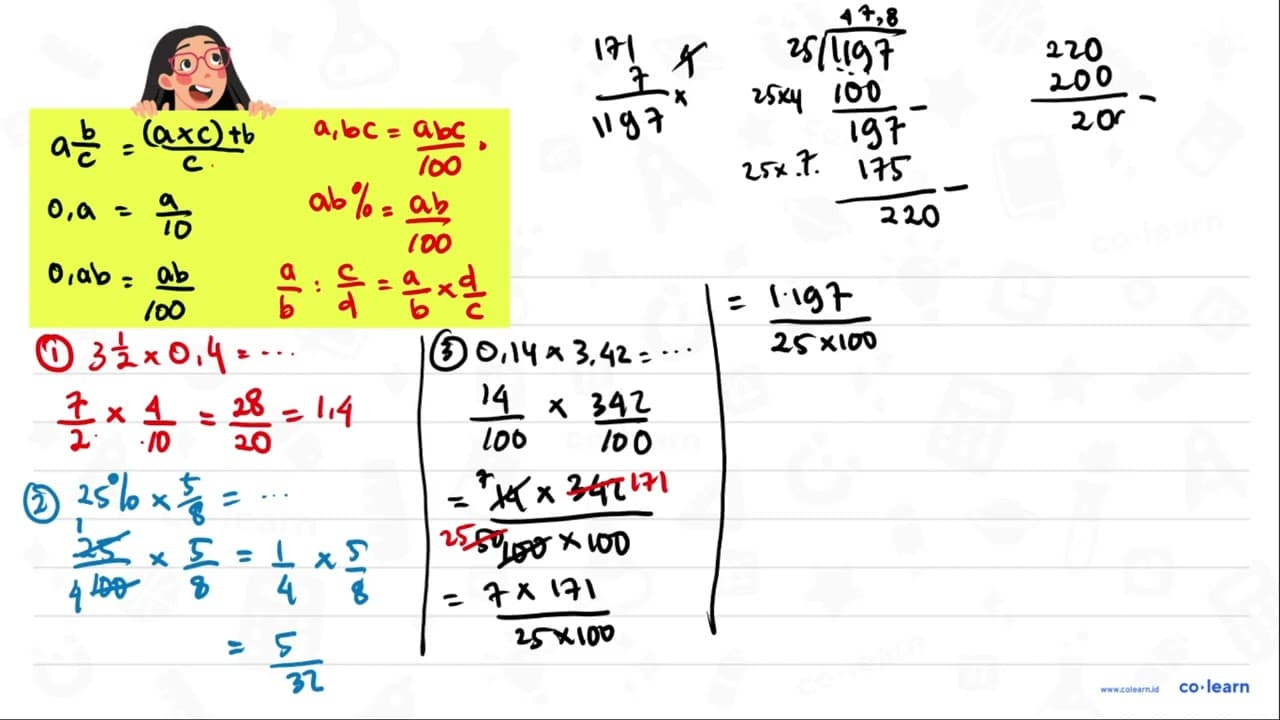 a b/c = (a x c) + b / c
a,bc = abc/100.
0,a = a/10
ab% = ab/100
0,ab = ab/100
a/b : c/d = a/b x d/c
① 3 1/2 x 0,4 = ...
7/2 x 4/10 = 28/20 = 1,4
② 25% x 5/8 = ...
1 25/100 4 x 5/8 = 1/4 x 5/8
= 5/32
③ 0,14 x 3,42 = ...
14/100 x 342/100
= 7 14 x 342 171
25 50 100 x 100
= 7 x 171 / 25 x 100
= 1.197 / 25 x 100
171
7 x
1197
47,8
25 1197
25x4 100 -
197
25x.7. 175 -
220
220
200 -
20
www.colearn.id
co·learn